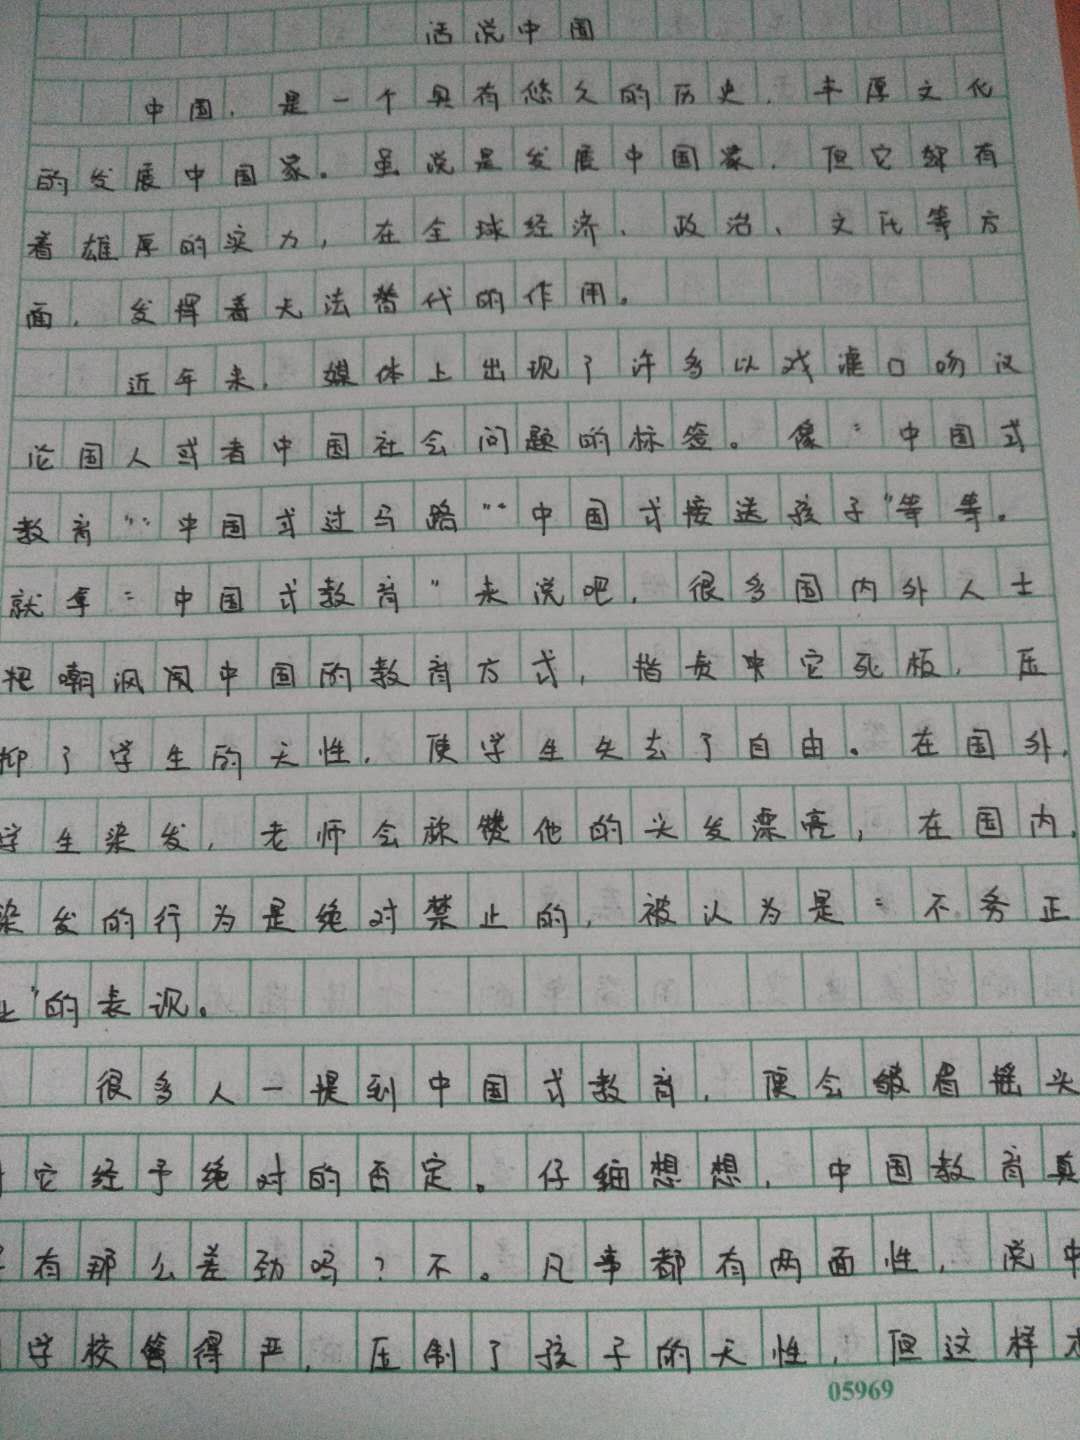 话说中国
中国，是一个具有悠久的历史，丰厚文化
的发展中国家。虽说是发展中国家，但它却有
着雄厚的实力，在全球经济、政治、文化等方
面，发挥着无法替代的作用。
近年来，媒体上出现了许多以戏谑口吻议
论国人或者中国社会问题的标签。像“中国式
教育”“中国式过马路”“中国式接送孩子”等等。
就拿“中国式教育”来说吧，很多国内外人士
把嘲讽中国的教育方式，指责它死板，压
抑了学生的天性，使学生失去了自由。在国外，
学生染发，老师会称赞他的头发漂亮，在国内，
染发的行为是绝对禁止的，被认为是“不务正
业”的表现。
很多人一提到中国式教育，便会皱眉摇头
它经予绝对的否定。仔细想想，中国教育真
有那么差劲吗？不。凡事都有两面性，说中
学校管得严，压制了孩子的天性，但这样
05969